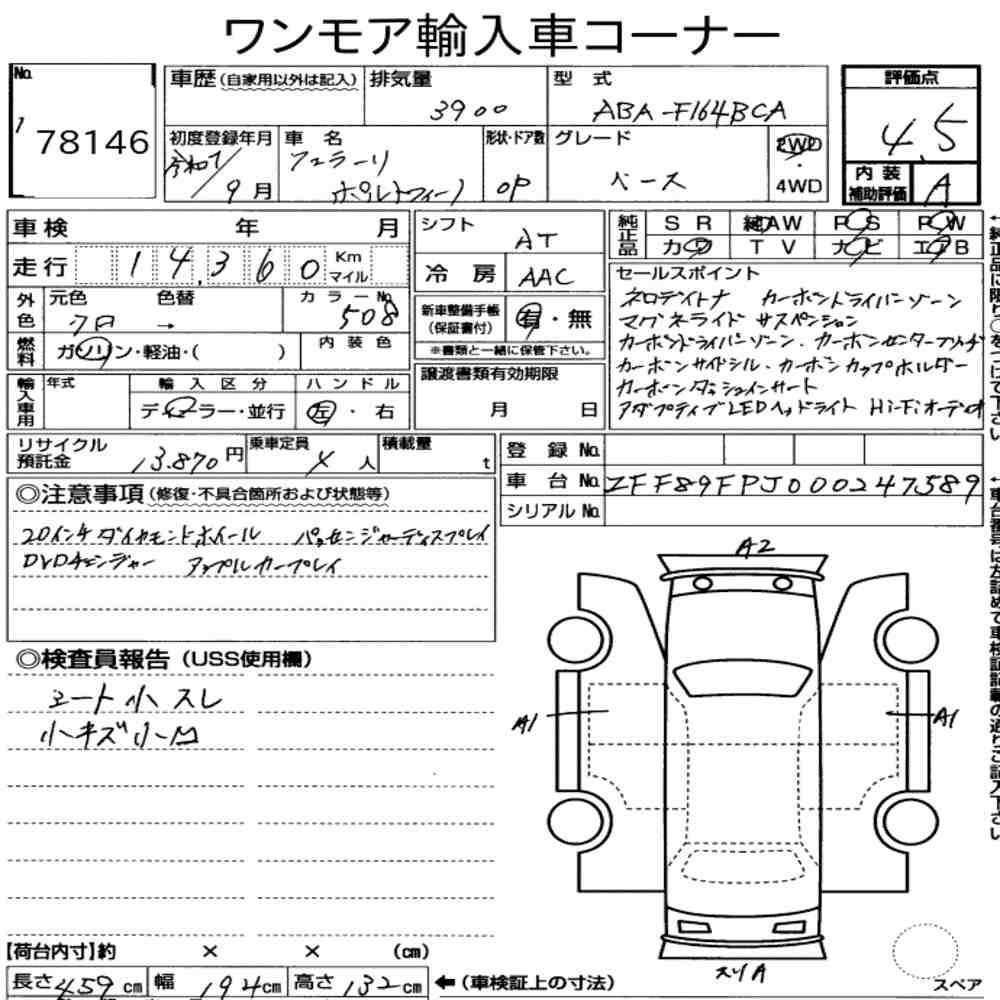 ワンモア輸入車コーナー
No. 78146
車歴(自家用以外は記入)
排気量 3900
型式 ABA-F164BCA
評価点 4.5
初度登録年月 令和1/9月
車名 フェラーリ ポルトフィーノ
形状・ドア数 OP
グレード ベース
2WD・4WD
内装補助評価 A
車検 年 月
走行 14,360 Km マイル
シフト AT
冷房 AAC
純正品 SR 純AW PS PW
カワ TV ナビ エアB
外色 元色 色替 カラーNo. 508
クロ →
燃料 ガソリン・軽油・( ) 内装色
新車整備手帳(保証書付) 有・無
※書類と一緒に保管下さい。
輸入車用 年式 輸入区分 ハンドル
ディーラー・並行 左・右
譲渡書類有効期限
月 日
セールスポイント
ネロデイトナ カーボンドライバーゾーン
マグネライド サスペンション
カーボンドライバーゾーン・カーボンセンターブリッヂ
カーボンサイドシル・カーボンカップホルダー
カーボンダッシュインサート
アダプティブLEDヘッドライト Hi-Fiオーディオ
リサイクル預託金 13.870円
乗車定員 4人
積載量 t
登録No.
車台No. ZFF89FPJ000247589
シリアルNo.
◎注意事項(修復・不具合箇所および状態等)
20インチダイヤモンドホイール パッセンジャーディスプレイ
DVDチェンジャー アップルカープレイ
◎検査員報告(USS使用欄)
シート小スレ
小キズ小凹
A2
A1
A1
スリA
スペア
【荷台内寸】約 × × (cm)
長さ459cm 幅194cm 高さ132cm ←(車検証上の寸法)
←純正品に限り○をつけて下さい
←車台番号は左詰めで車検証記載の通りご記入下さい